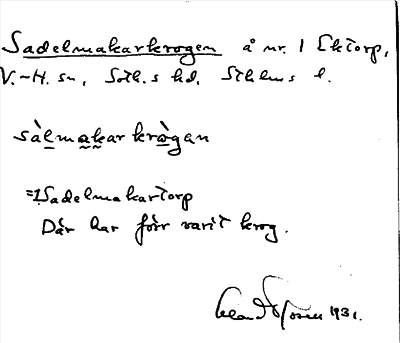 Sadelmakarkrogen å nr. 1 Ektorp,
V.-H. sn, Soth.s hd, Sthlms l.
sàlmakar kràgan
=1Sadelmakartorp
Där har förr varit krog.
1931.